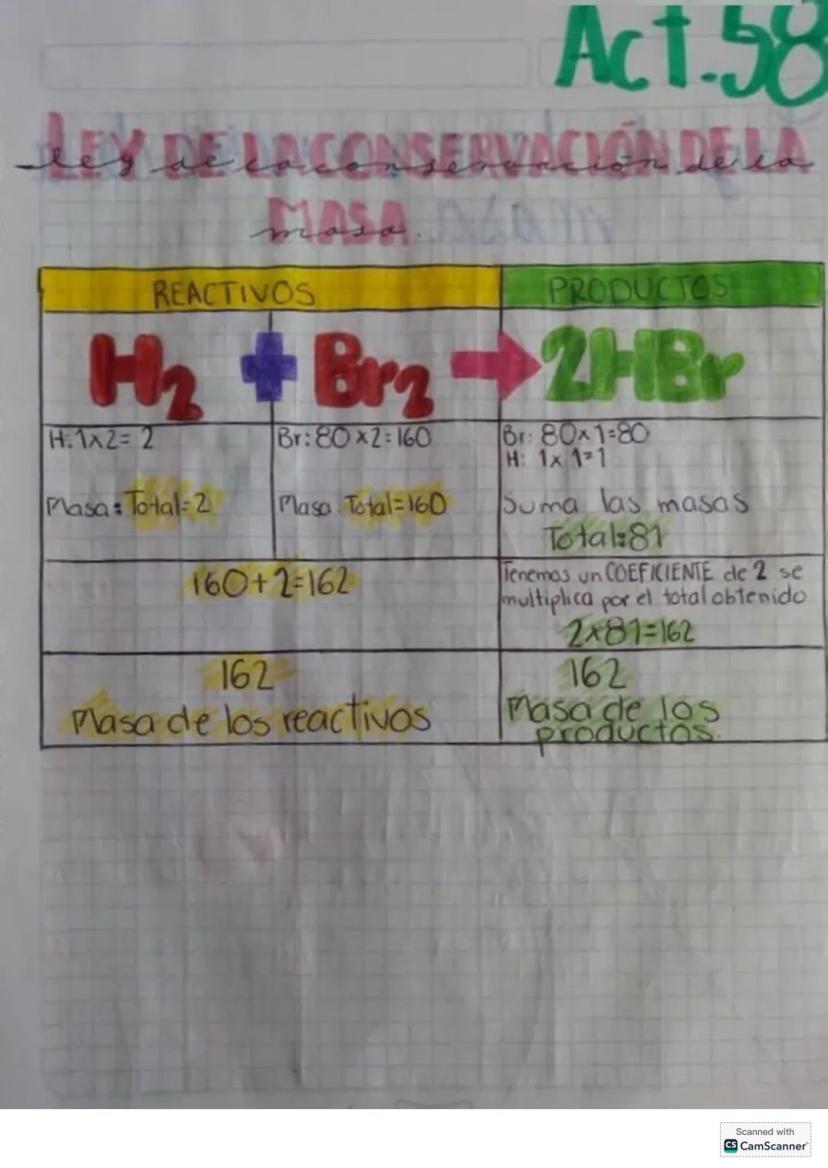 Act.58
LEY DE LA CONSERVACIÓN DE LA
ley de la conservación de la
MASA.
masa
REACTIVOS PRODUCTOS
H2 + Br2 → 2HBr
H:1x2= 2
Br:80x2=160
Br: 80x1=80
H: 1x1=1
Masa: Total=2
Masa: Total=160
Suma las masas
Total=81
160+2=162
Tenemos un COEFICIENTE de 2 se
multiplica por el total obtenido
2x81=162
162
Masa de los reactivos
162
Masa de los
productos.
Scanned with
CS CamScanner